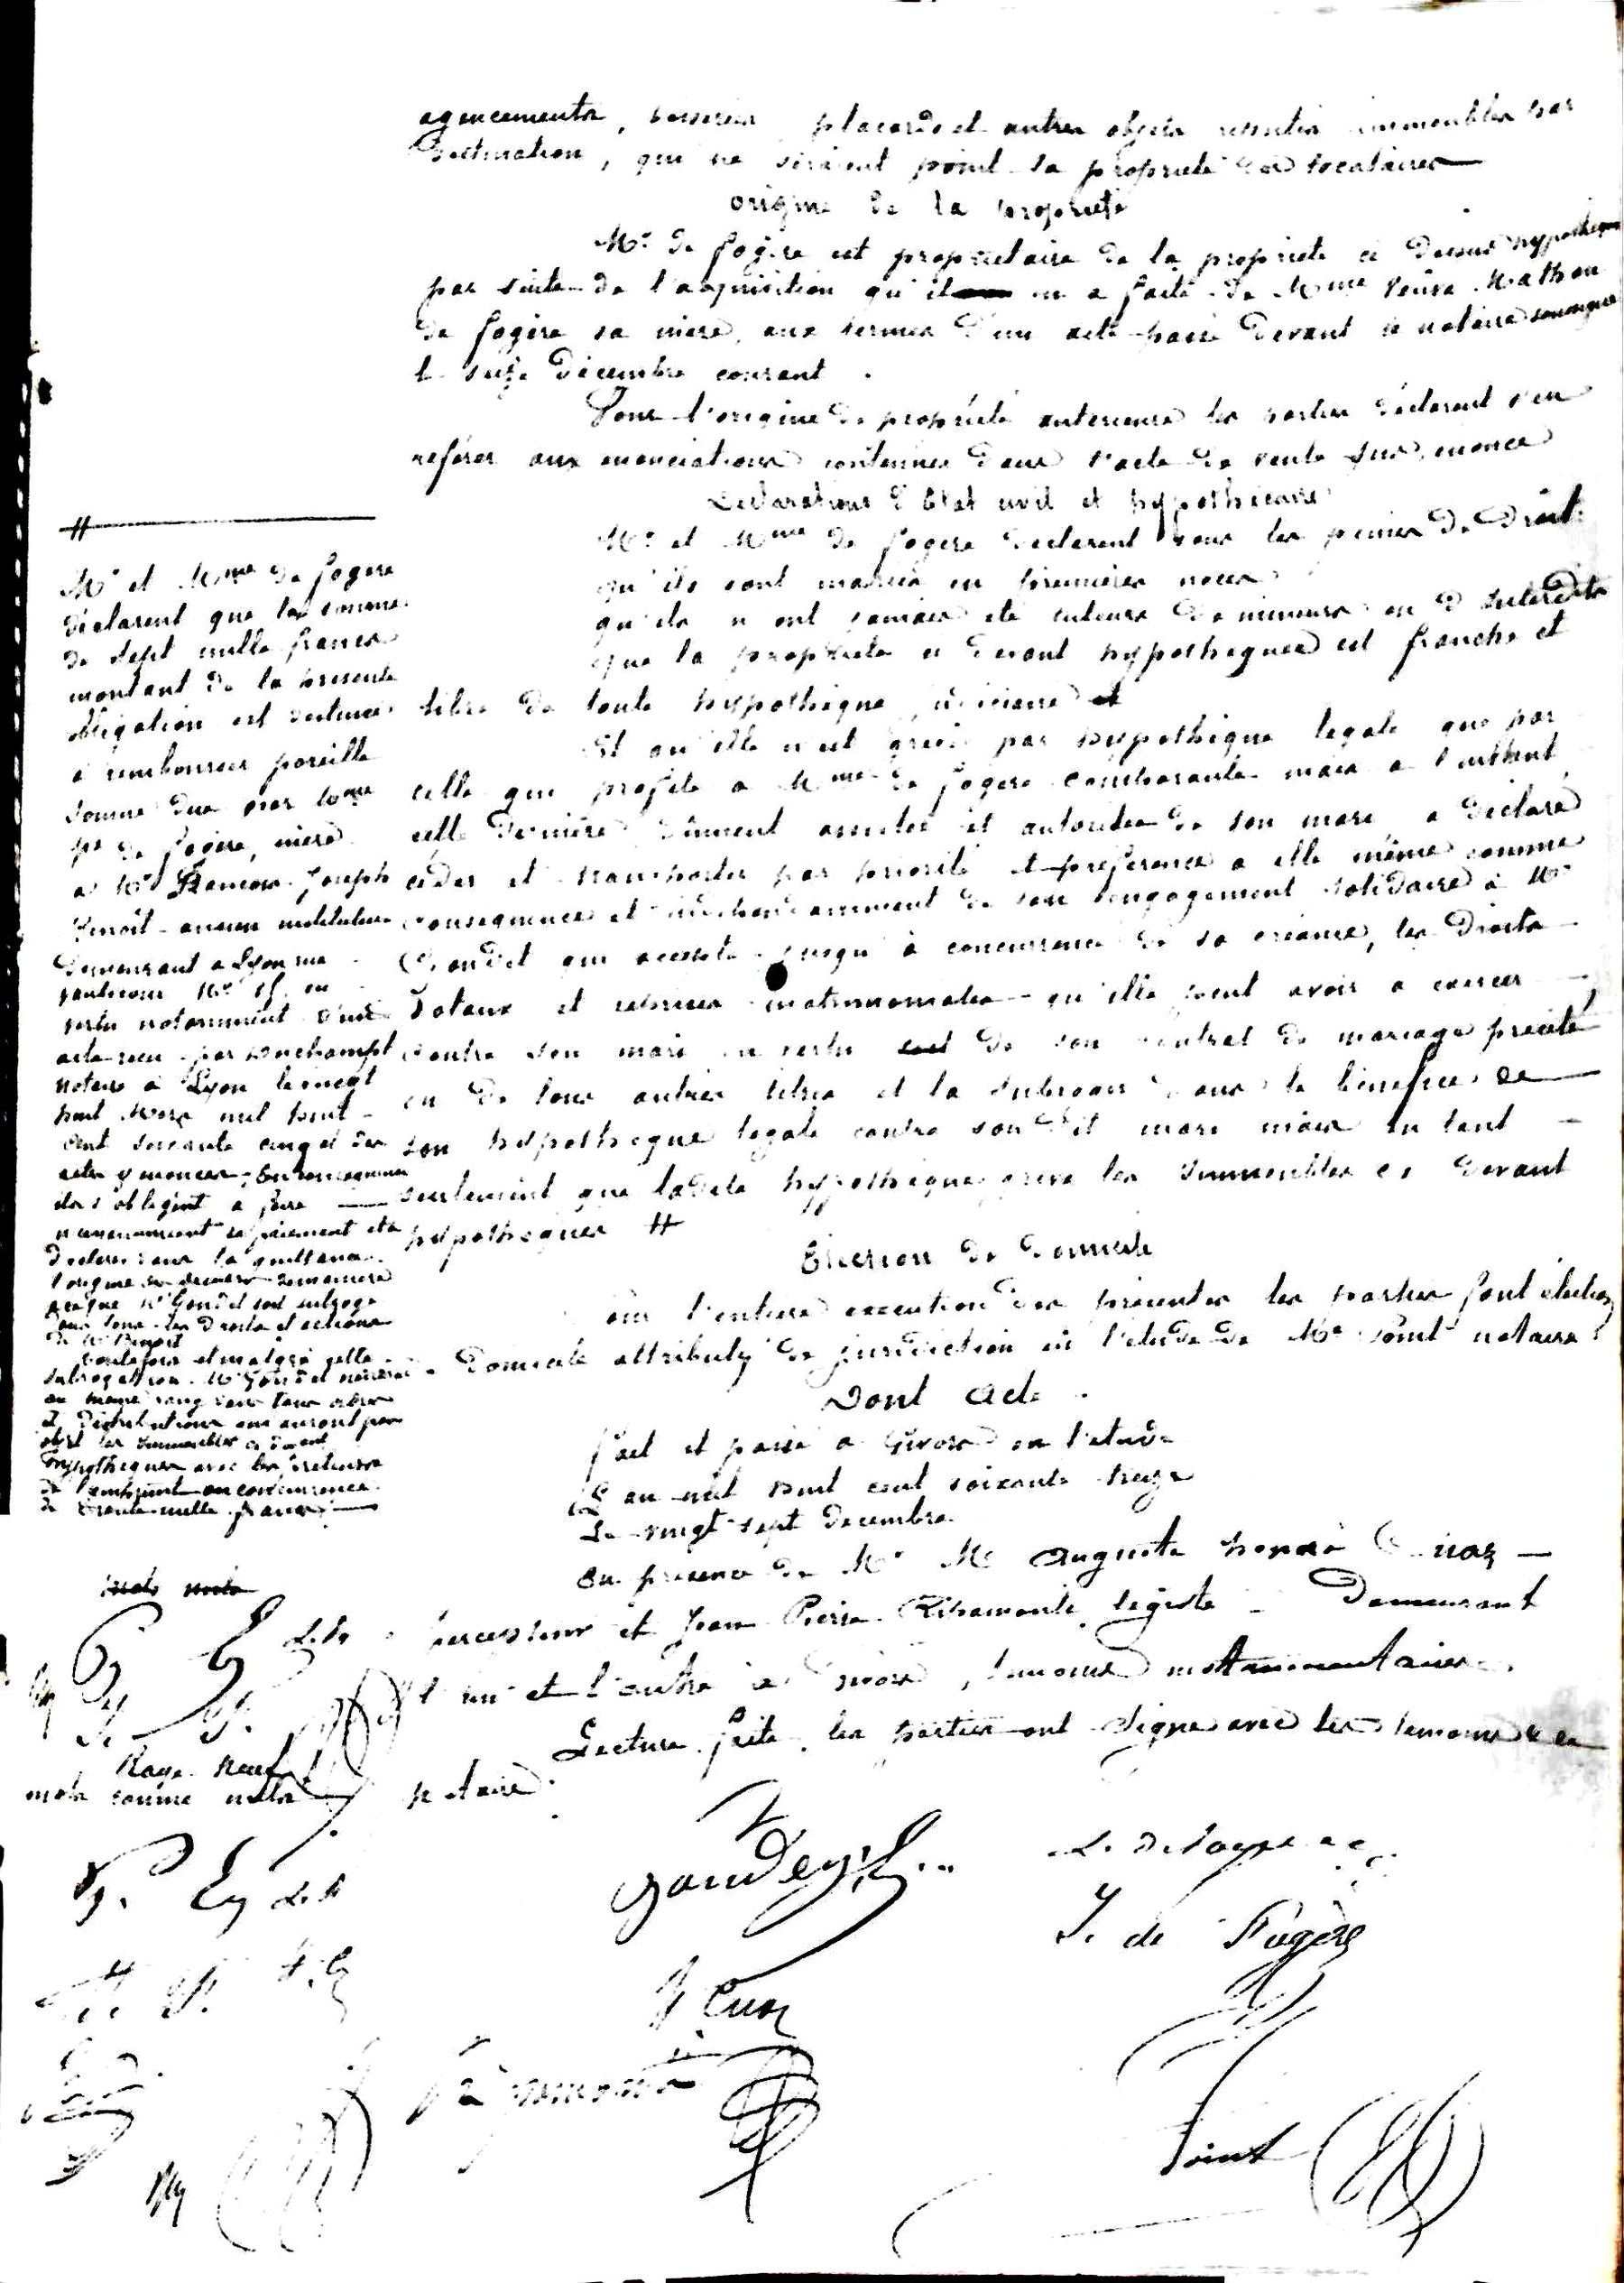 agencements, placards et autres objets immeubles par
destination, qui ne seraient point la propriété des locataires
origine de la propriété
Mr de fogère est propriétaire de la propriété ci dessus hypothéquée
par suite de l'acquisition qu'il en a faite de Mme veuve Mathon
de fogère sa mère, aux termes d'un acte passé devant le notaire soussigné
le seize décembre courant.
Pour l'origine de propriété antérieure les parties déclarent s'en
référer aux énonciations contenues dans l'acte de vente sus énoncé
Déclarations d'Etat civil et hypothécaire
Mr et Mme de fogère déclarent sous les peines de droit
qu'ils sont mariés en premières noces
qu'ils n'ont jamais été tuteurs de mineurs ou d'interdits
que la propriété ci devant hypothéquée est franche et
libre de toute hypothèque judiciaire et
Et qu'elle n'est grevée par hypothèque légale que par
celle qui profite à Mme de fogère comparante mais à l'instant
cette dernière dûment assistée et autorisée de son mari a déclaré
céder et transporter par priorité et préférence à elle même comme
conséquence et indépendamment de son engagement solidaire à Mr
Gondet qui accepte jusqu'à concurrence de sa créance, les droits
dotaux et reprises matrimoniales qu'elle peut avoir à exercer
contre son mari en vertu de son contrat de mariage précité
ou de tous autres titres et la subroger dans le bénéfice de
son hypothèque légale contre son dit mari mais en tant
seulement que ladite hypothèque grève les immeubles ci devant
hypothéqués #
Election de domicile
Pour l'entière exécution des présentes les parties font élection
de domicile attributif de juridiction en l'étude de Me Point notaire
Dont acte.
fait et passé à Givors en l'étude
L'an mil huit cent soixante treize
Le vingt sept décembre
En présence de Mr Mr Auguste
percepteur et Jean Pierre légiste demeurant
l'un et l'autre à Givors, témoins instrumentaires.
Lecture faite, les parties ont signé avec les témoins & le
notaire.
#
Mr et Mme de fogère
déclarent que la somme
de sept mille francs
montant de la présente
obligation est destinée
à rembourser pareille
somme due par Mme
de fogère, mère
à Mr François Joseph
Benoît ancien instituteur
demeurant à Lyon rue
No 15 en
vertu notamment d'un
acte reçu par
notaire à Lyon le vingt
huit Mars mil huit
cent soixante cinq et des
actes y énoncés, En conséquence
ils s'obligent à faire
le paiement et à
déclarer dans la quittance
l'origine des deniers de manière
à ce que Mr Gondet soit subrogé
dans tous les droits et actions
de Mr Benoît
toutefois et malgré cette
subrogation Mr Gondet viendra
au même rang dans tous ordres
et distributions qui auront pour
objet les immeubles ci devant
hypothéqués avec les prêteurs
de l'emprunt en concurrence
de trente mille francs
mots nuls
Rayé neuf
mots comme nuls
L. de fogère
J. de Fogère
Point